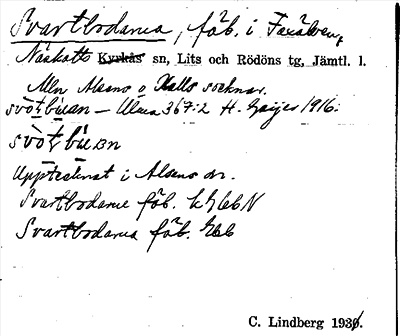 Svartbodarna, fäb. i Faxälven,
Näskotts Kyrkås sn, Lits och Rödöns tg, Jämtl. l.
Mln Alsens o Kalls socknar.
— Ulma 367:2 H. Geijer 1916.
Upptecknat i Alsens sn.
Svartbodarne fäb. k G66 N
Svartbodarna fäb. G66
C. Lindberg 1930.